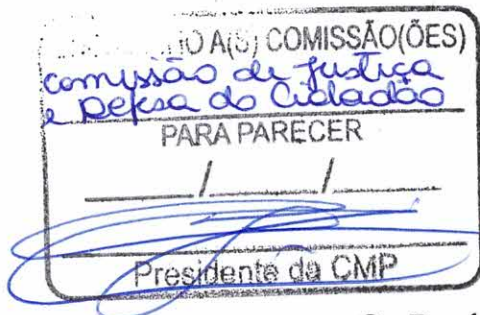 A(S) COMISSÃO(ÕES)
Comissão de Justiça
e Defesa do Cidadão
PARA PARECER
/ /
Presidente da CMP